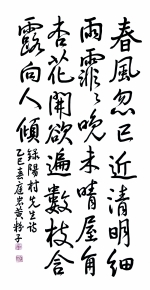 春風忽已近清明細
雨霏〻晚未晴屋角
杏花開欲遍數枝含
露向人傾
錄陽村先生詩
乙巳春庭
黃粉子